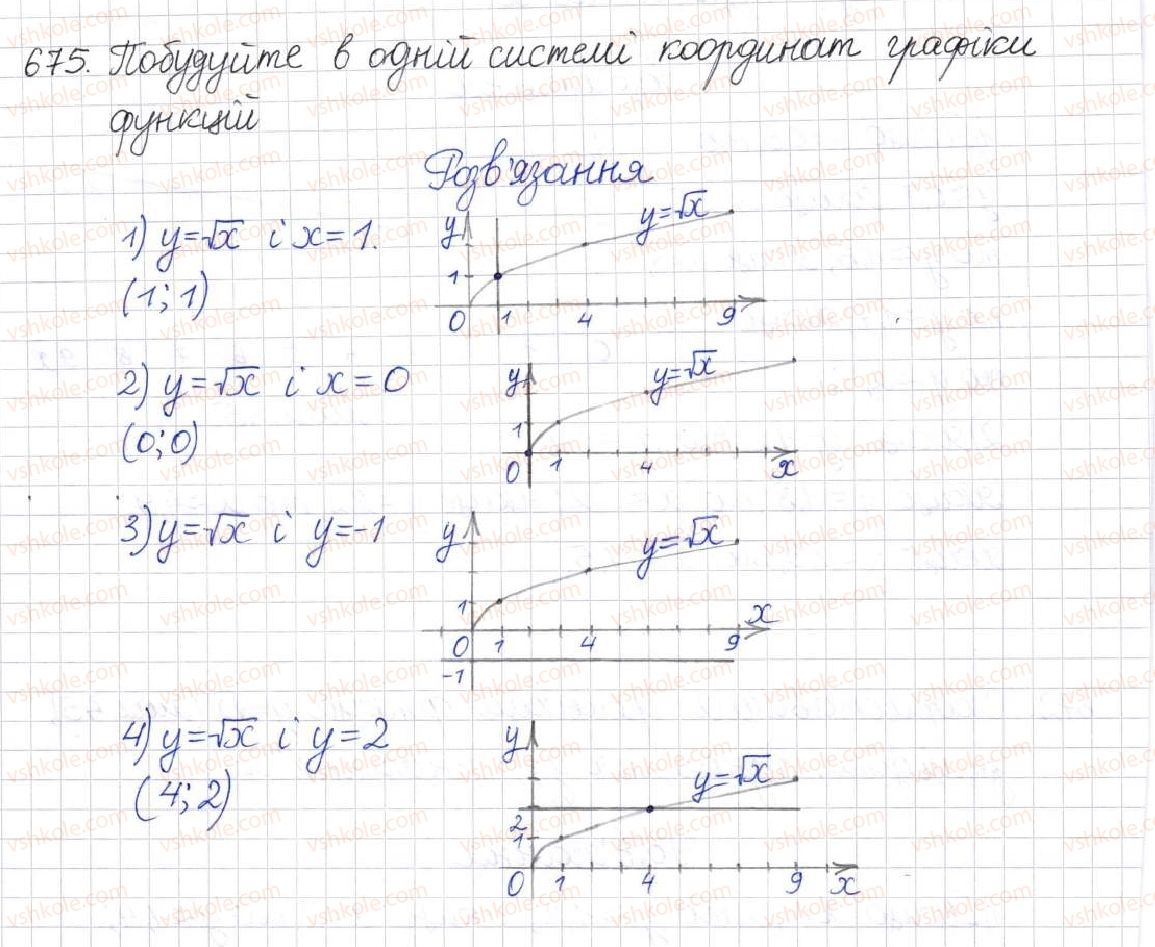 675. Побудуйте в одній системі координат графіки
функцій
Розв'язання
1) y=√x і x=1.
(1; 1)
y
y=√x
1
0 1 4 9
2) y=√x і x=0
(0; 0)
y
y=√x
1
0 1 4 x
3) y=√x і y=-1
y
y=√x
1
x
0 1 4 9
-1
4) y=√x і y=2
(4; 2)
y
y=√x
2
1
0 1 4 9 x
vshkole.com